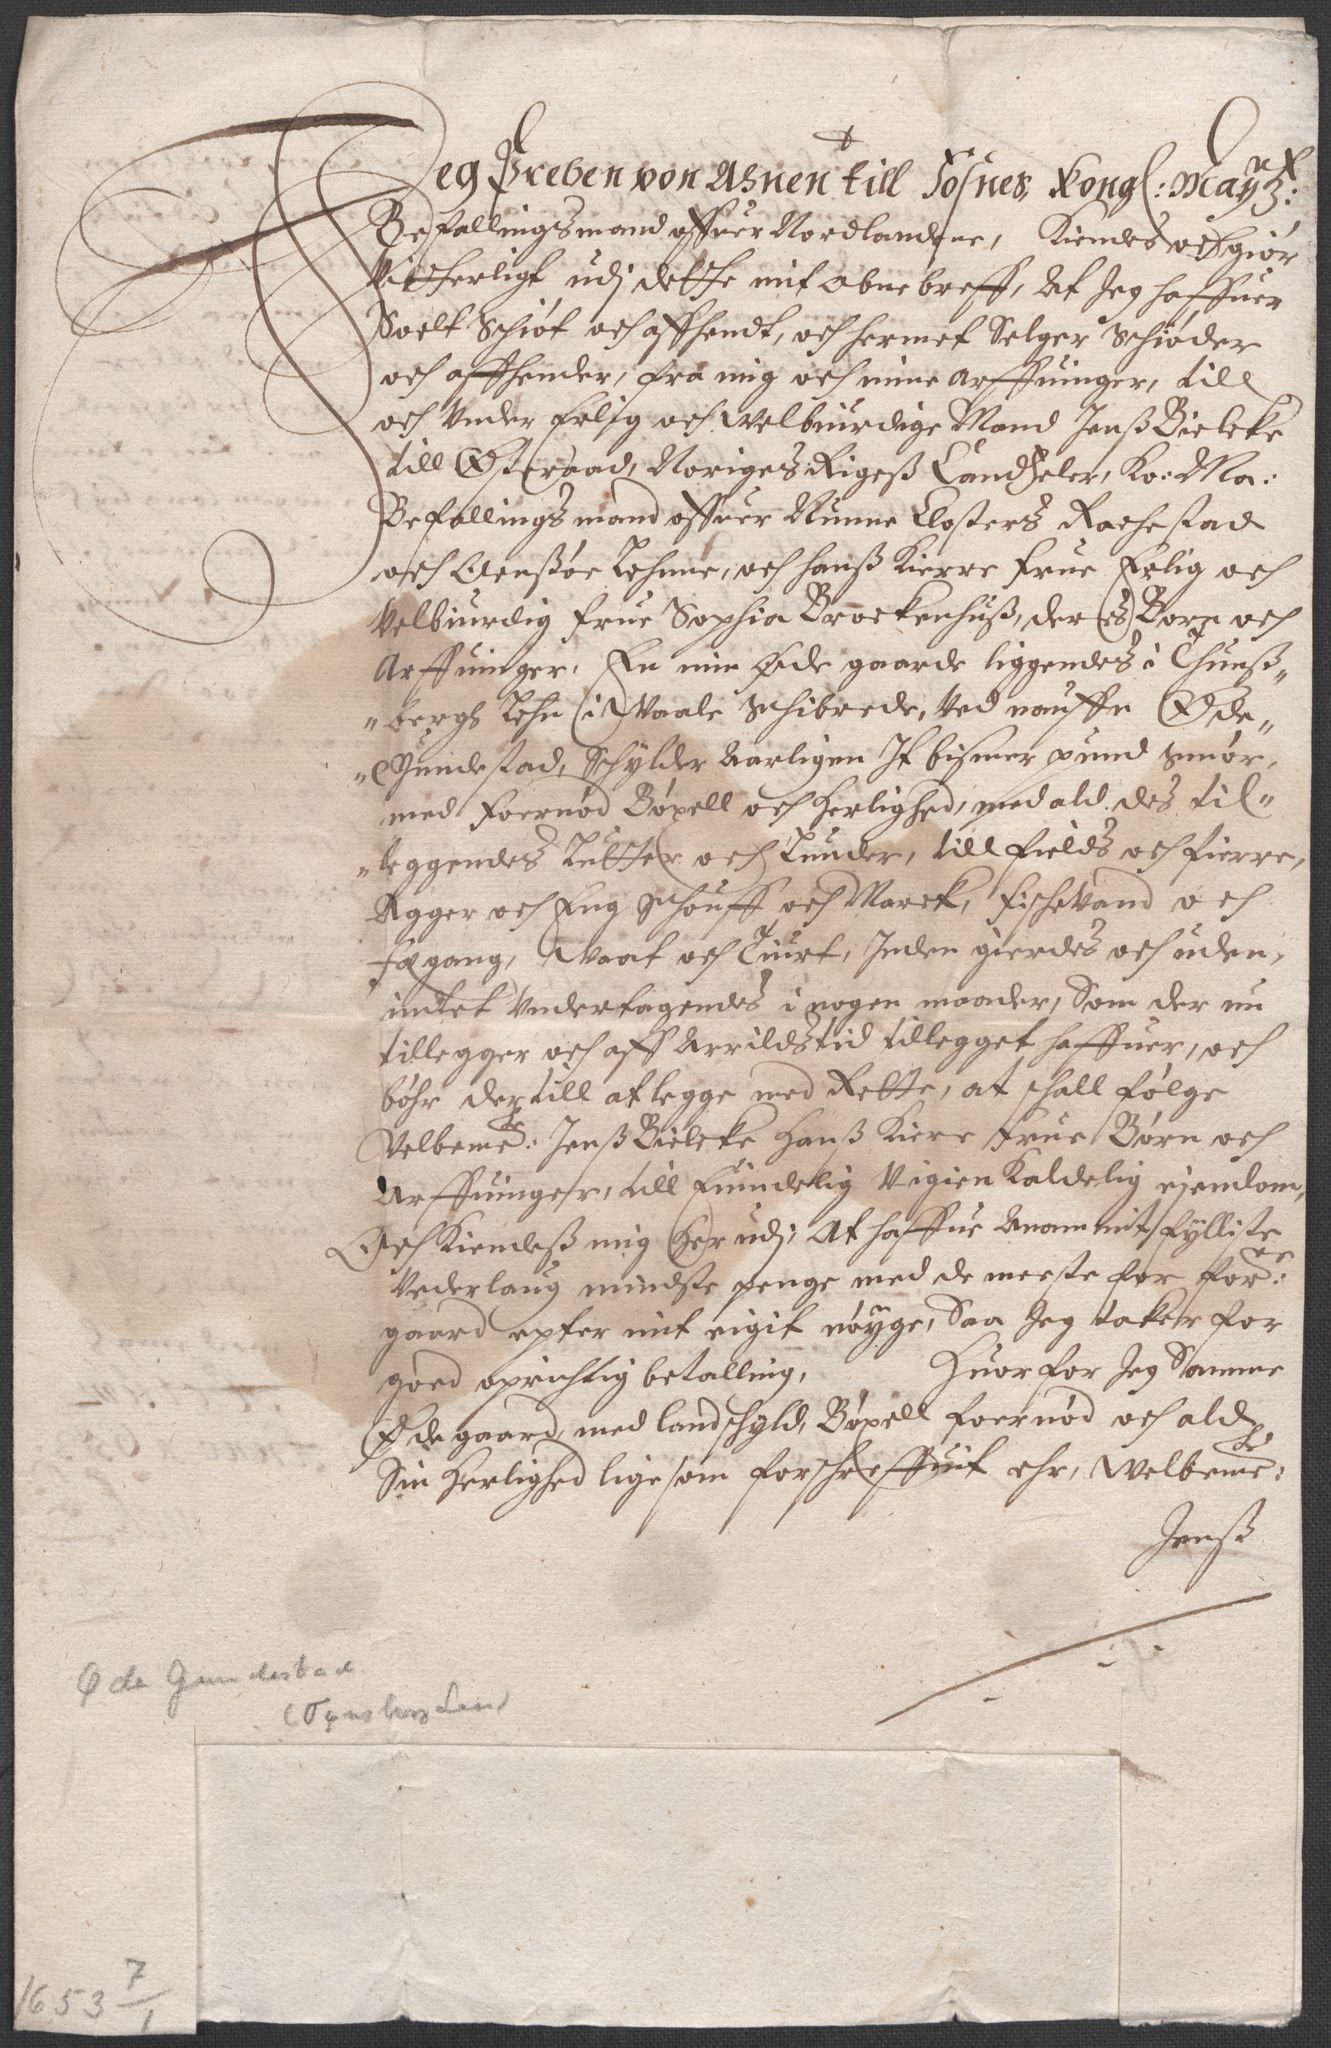 Jeg Preben von Ahnen till Fosnes, Kongl: Mayttz:
Befallingsmand offuer Nordlandene, Kiendes och giør
Vitterligt udj dette mit obne breff, At Jeg haffuer
Soelt Schiøt och affhendt, och hermet Selger Schiøder
och affhender, fra mig och mine Arffuinger, till
och Under Erlig och Welbiurdige Mand Jenß Bielcke
till Østeraad, Noriges Rigeß Candtzeler, Ko: Ma:
Befallings mand offuer Nunne Closters Rachestad
och Onsøe Lehnne, och hanß Kierre frue Erlig och
Velbiurdig frue Sophia Brockenhuß, deres Børn och
Arffuinger, En min Øde gaarde liggendes i Thunß¬
¬bergs Lehn i Waale Schibrede, Ved naffn Øde¬
¬Gundestad, Schylder Aarligen It bismer pund Smør,
med foernød Bøxell och herlighed, med ald des til¬
¬leggendes Lutter och Lunder, till fields och fierre,
Agger och Eng Schouff och Marck, fischevand och
fægang, Waat och Tiurt, Inden gierdes och uden,
intet Undertagendes i nogen maader, Som der nu
tillegger och aff Arrilds tid tillegget haffuer, och
bøhr der till at legge med Rette, at schall følge
Velbemte: Jenß Bielcke hanß Kiere frue Børn och
Arffuinger, till Euindelig Vigien Kaldelig ejendom,
Och Kiendeß mig her udj, At haffue Anammit fylliste
Vederlaug mindste penge med de meeste for forne:
gaard epter mit eigit nøyge, Saa Jeg tacker for
goed oprichtig betalling, Huor for Jeg Samme
Øde gaard, med landschyld, Bøxell foernød och ald
Sin herlighed lige som forschreffuit ehr, Welbemte:
Jenß
Øde Gundestad
(Tønsberg Len)
1653 7/1